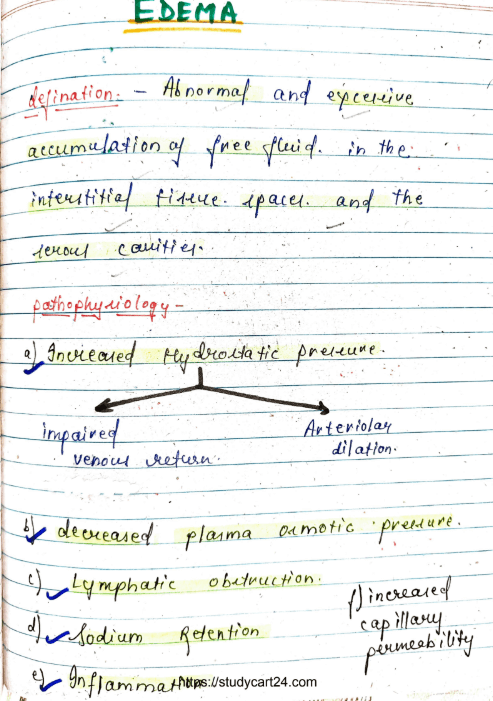 EDEMA
defination:- Abnormal and excessive
accumulation of free fluid. in the
interstitial tissue. spaces. and the
serous cavities.
pathophysiology -
a) Increased Hydrostatic pressure.
impaired
venous return.
Arteriolar
dilation.
b) decreased plasma osmotic pressure.
c) Lymphatic obstruction.
d) Sodium Retention
e) Inflammation
f) increased
capillary
permeability
https://studycart24.com